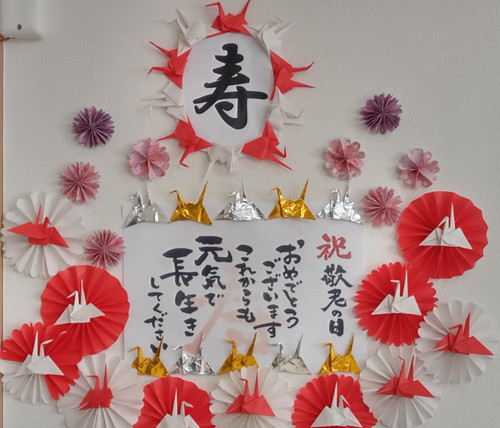 寿
祝敬老の日
おめでとう
ございます
これからも
元気で
長生き
してください